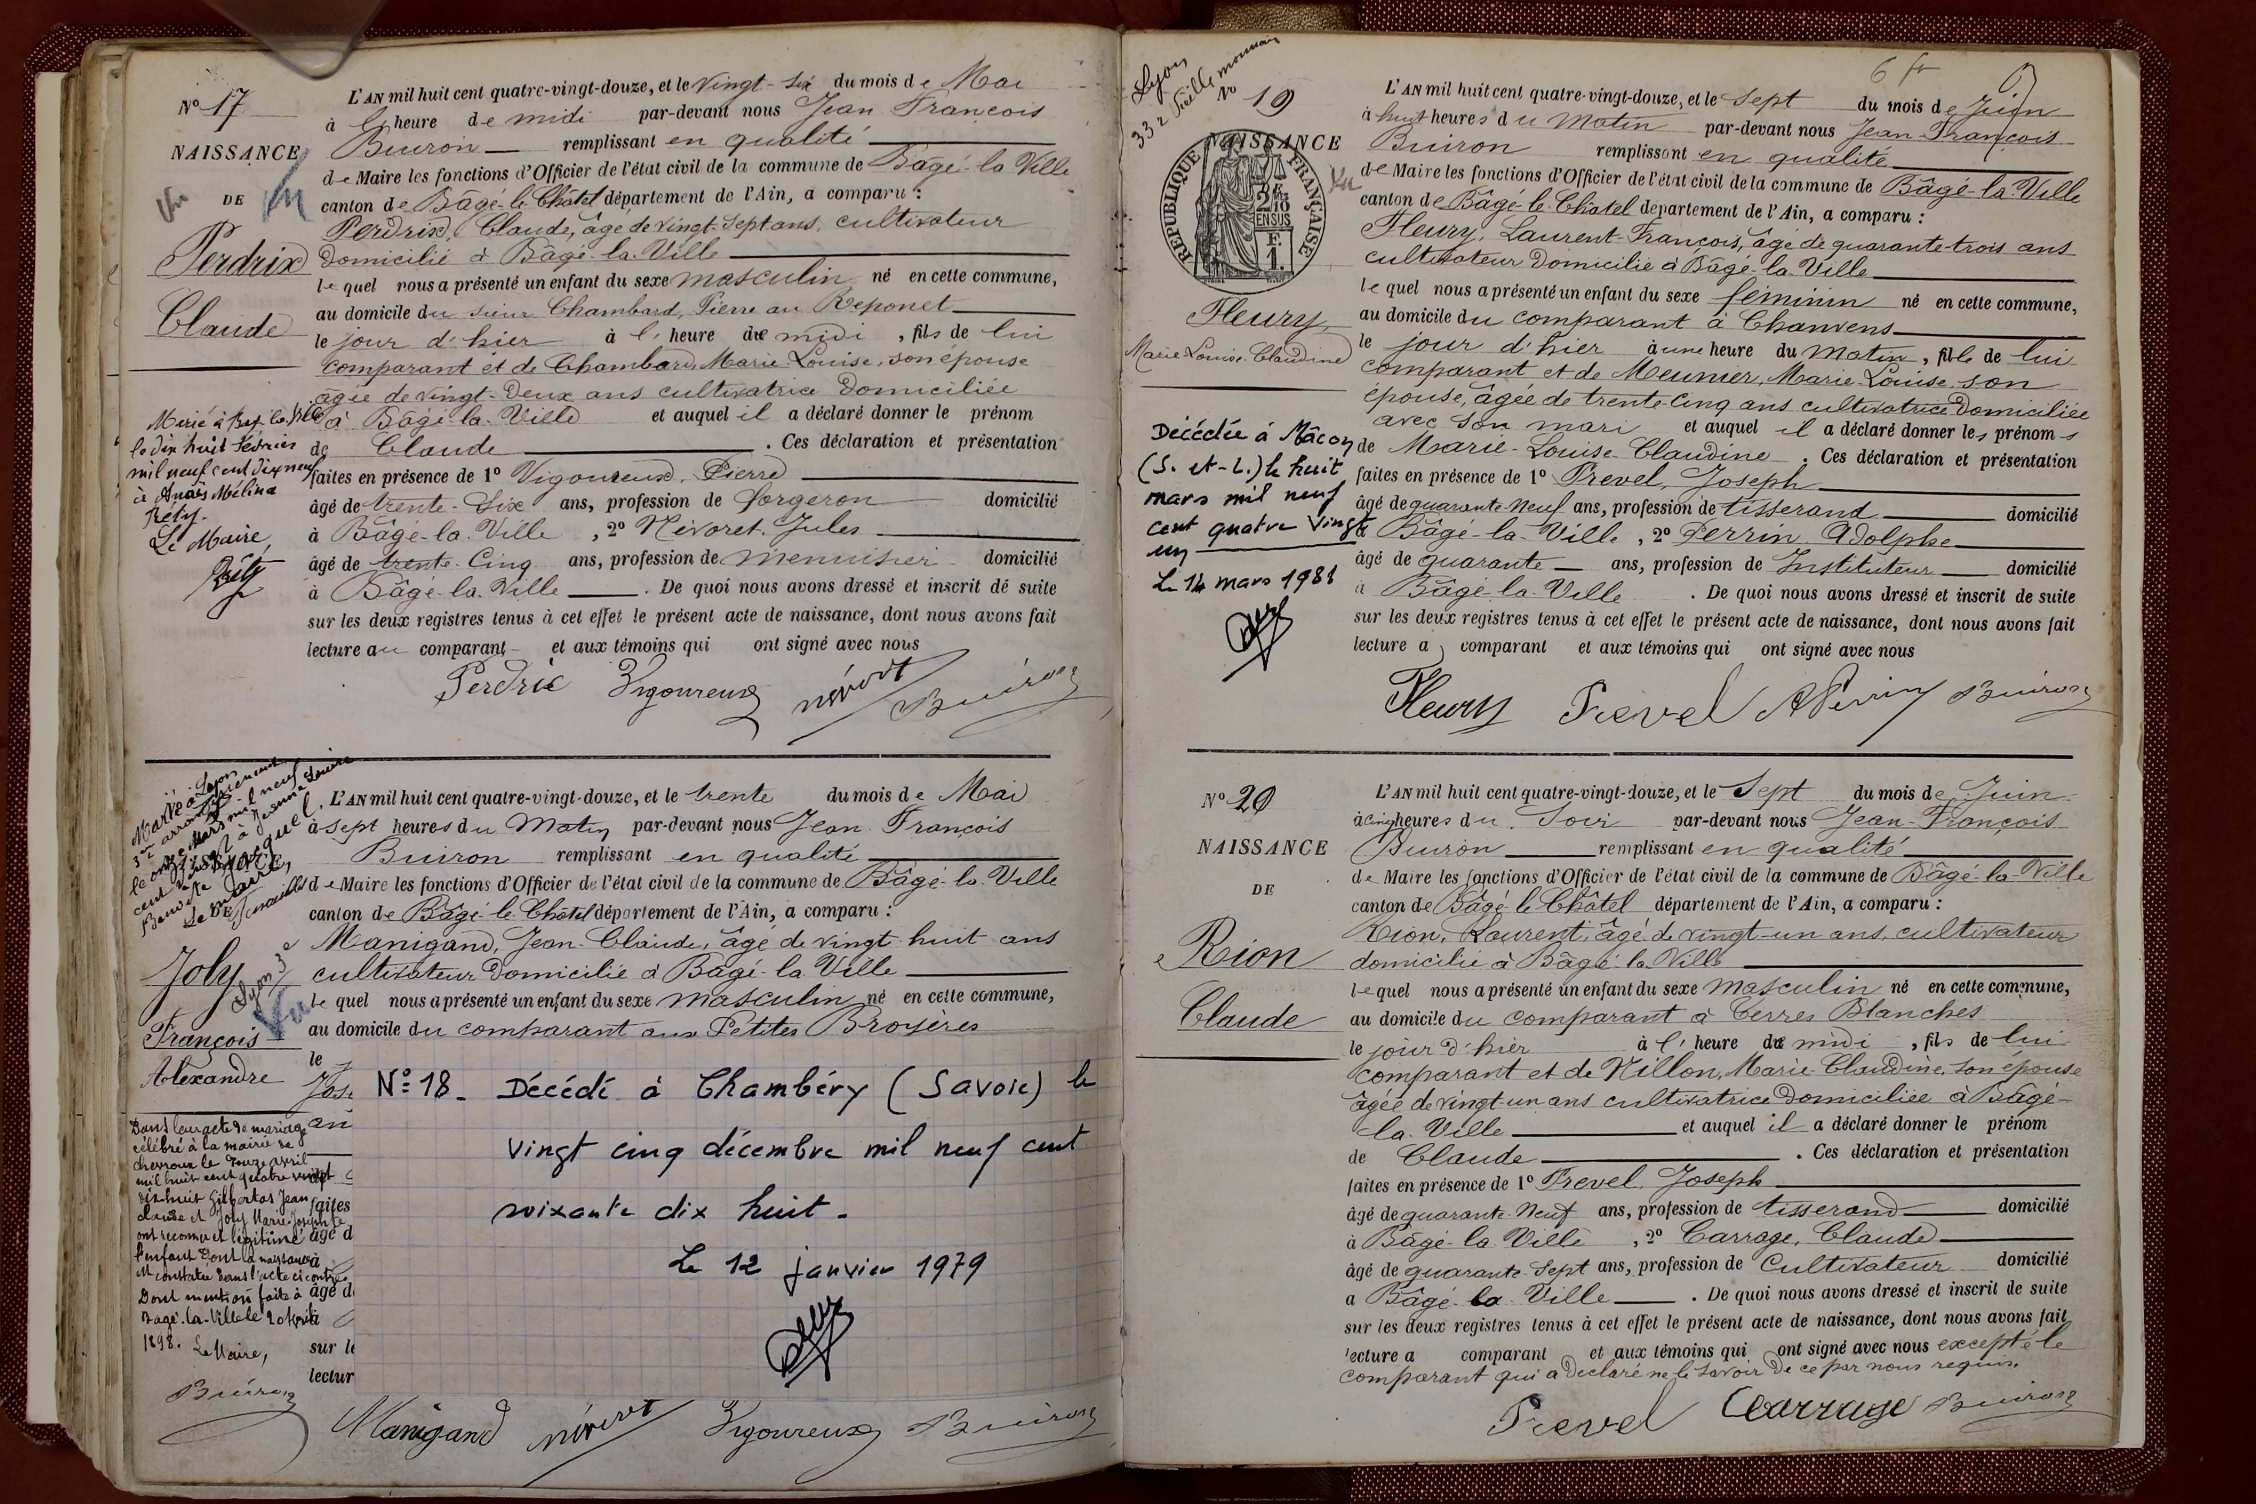 N° 17
NAISSANCE
DE
Vu
Vu
Perdrix
Claude
L'AN mil huit cent quatre-vingt-douze, et le vingt-six du mois de Mai
à l' heure de midi par-devant nous Jean François
Buiron remplissant en qualité
de Maire les fonctions d'Officier de l'état civil de la commune de Bâgé-la-Ville
canton de Bâgé-le-Châtel département de l'Ain, a comparu :
Perdrix, Claude, âgé de vingt-sept ans, cultivateur
domicilié à Bâgé-la-Ville
lequel nous a présenté un enfant du sexe masculin né en cette commune,
au domicile du sieur Chambard, Pierre au Reponet
le jour d'hier à l' heure de midi, fils de lui
comparant et de Chambard, Marie-Louise, son épouse
âgée de vingt-deux ans cultivatrice domiciliée
à Bâgé-la-Ville et auquel il a déclaré donner le prénom
de Claude . Ces déclaration et présentation
faites en présence de 1° Vigoureux, Pierre
âgé de trente-six ans, profession de forgeron domicilié
à Bâgé-la-Ville, 2° Névoret, Jules
âgé de trente-cinq ans, profession de menuisier domicilié
à Bâgé-la-Ville . De quoi nous avons dressé et inscrit de suite
sur les deux registres tenus à cet effet le présent acte de naissance, dont nous avons fait
lecture au comparant et aux témoins qui ont signé avec nous
Perdrix Vigoureux Névoret Buiron
le dix huit Février
mil neuf cent dix neuf
à Anaïs Mélina
Réty.
Le Maire,
Joly
François
Alexandre
Lyon 3e
Vu
L'AN mil huit cent quatre-vingt-douze, et le trente du mois de Mai
à sept heures du Matin par-devant nous Jean François
Buiron remplissant en qualité
de Maire les fonctions d'Officier de l'état civil de la commune de Bâgé-la-Ville
canton de Bâgé-le-Châtel département de l'Ain, a comparu :
Manigand, Jean-Claude, âgé de vingt-huit ans
cultivateur domicilié à Bâgé-la-Ville
lequel nous a présenté un enfant du sexe masculin né en cette commune,
au domicile du comparant aux Petites Broyères
le
N° 18 - Décédé à Chambéry (Savoie) le
vingt cinq décembre mil neuf cent
soixante dix huit -
Le 12 janvier 1979
faites
âgé d
âgé d
sur le
lectur
Manigand Névoret Vigoureux Buiron
Dans leur acte de mariage
célébré à la mairie de
chevroux le douze avril
mil huit cent quatre vingt
dix-huit Gilbertas Jean
claude et Joly Marie-Josephte
ont reconnu et légitimé
l'enfant dont la naissance
est constatée dans l'acte ci contre
Dont mention faite à
Bâgé-la-Ville le 20 Avril
1898. Le Maire,
Buiron
Lyon
N° 19
NAISSANCE
REPUBLIQUE FRANÇAISE
Vu
Fleury,
Marie Louise Claudine
6 fr
L'AN mil huit cent quatre-vingt-douze, et le sept du mois de Juin
à huit heures du Matin par-devant nous Jean-François
Buiron remplissant en qualité
de Maire les fonctions d'Officier de l'état civil de la commune de Bâgé-la-Ville
canton de Bâgé-le-Châtel département de l'Ain, a comparu :
Fleury, Laurent-François, âgé de quarante-trois ans
cultivateur domicilié à Bâgé-la-Ville
lequel nous a présenté un enfant du sexe féminin né en cette commune,
au domicile du comparant à Chanvens
le jour d'hier à une heure du Matin, fille de lui
comparant et de Meunier, Marie-Louise, son
épouse, âgée de trente-cinq ans cultivatrice domiciliée
avec son mari et auquel il a déclaré donner les prénoms
de Marie-Louise-Claudine . Ces déclaration et présentation
faites en présence de 1° Prevel, Joseph
âgé de quarante-neuf ans, profession de tisserand domicilié
à Bâgé-la-Ville, 2° Perrin Adolphe
âgé de quarante ans, profession de Instituteur domicilié
à Bâgé-la-Ville . De quoi nous avons dressé et inscrit de suite
sur les deux registres tenus à cet effet le présent acte de naissance, dont nous avons fait
lecture a comparant et aux témoins qui ont signé avec nous
Fleury Prevel A Perrin Buiron
Décédée à Mâcon
(S. et-L.) le huit
mars mil neuf
cent quatre vingt
un
Le 14 mars 1981
N° 20
NAISSANCE
DE
Rion
Claude
L'AN mil huit cent quatre-vingt-douze, et le Sept du mois de Juin
à cinq heures du Soir par-devant nous Jean-François
Buiron remplissant en qualité
de Maire les fonctions d'Officier de l'état civil de la commune de Bâgé-la-Ville
canton de Bâgé-le-Châtel département de l'Ain, a comparu :
Rion, Laurent, âgé de vingt-un ans, cultivateur
domicilié à Bâgé-la-Ville
lequel nous a présenté un enfant du sexe masculin né en cette commune,
au domicile du comparant à Terres Blanches
le jour d'hier à l' heure de midi, fils de lui
comparant et de Nillon, Marie-Claudine, son épouse
âgée de vingt-un ans cultivatrice domiciliée à Bâgé-
la-Ville et auquel il a déclaré donner le prénom
de Claude . Ces déclaration et présentation
faites en présence de 1° Prevel, Joseph
âgé de quarante-neuf ans, profession de tisserand domicilié
à Bâgé-la-Ville, 2° Carrage, Claude
âgé de quarante-sept ans, profession de Cultivateur domicilié
a Bâgé-la-Ville . De quoi nous avons dressé et inscrit de suite
sur les deux registres tenus à cet effet le présent acte de naissance, dont nous avons fait
lecture a comparant et aux témoins qui ont signé avec nous excepté le
comparant qui a déclaré ne le savoir de ce par nous requis.
Prevel Carrage Buiron